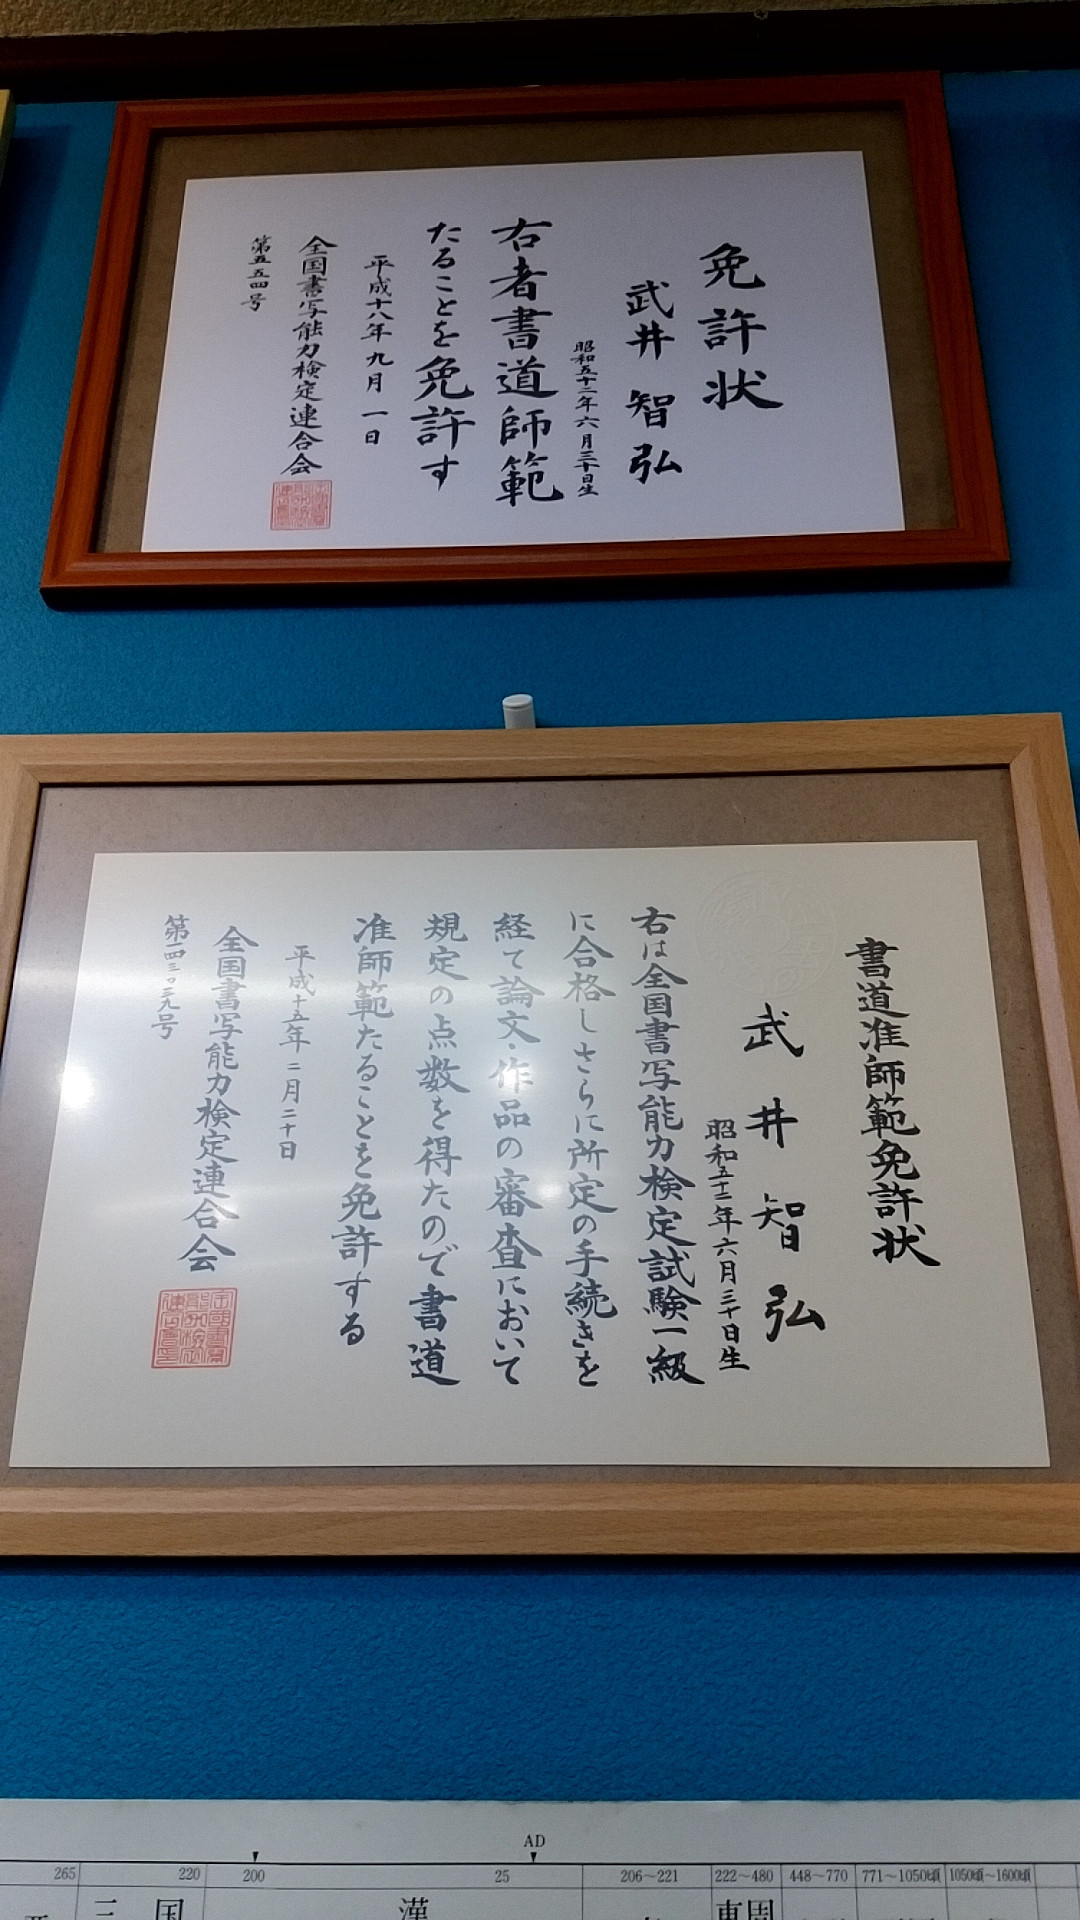 免許状
武井智弘
昭和五十二年六月三十日生
右者書道師範
たることを免許す
平成十八年九月一日
全国書写能力検定連合会
第五五四号
書道准師範免許状
武井智弘
昭和五十二年六月三十日生
右は全国書写能力検定試験一級
に合格しさらに所定の手続きを
経て論文・作品の審査において
規定の点数を得たので書道
准師範たることを免許する
平成十五年二月二十日
全国書写能力検定連合会
第一四三〇三九号
AD
265 220 200 25 206～221 222～480 448～770 771～1050頃 1050頃～1600頃
三国 漢